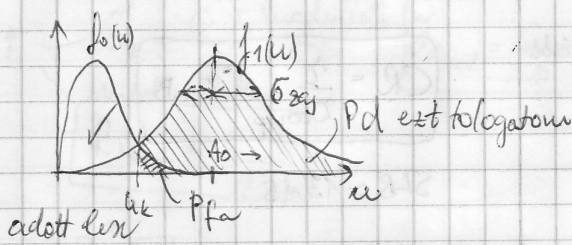 f₀(u)
f₁(u)
σzaj
Pd ezt tologatom
A₀ →
uₖ
Pfa
u
adott lesz